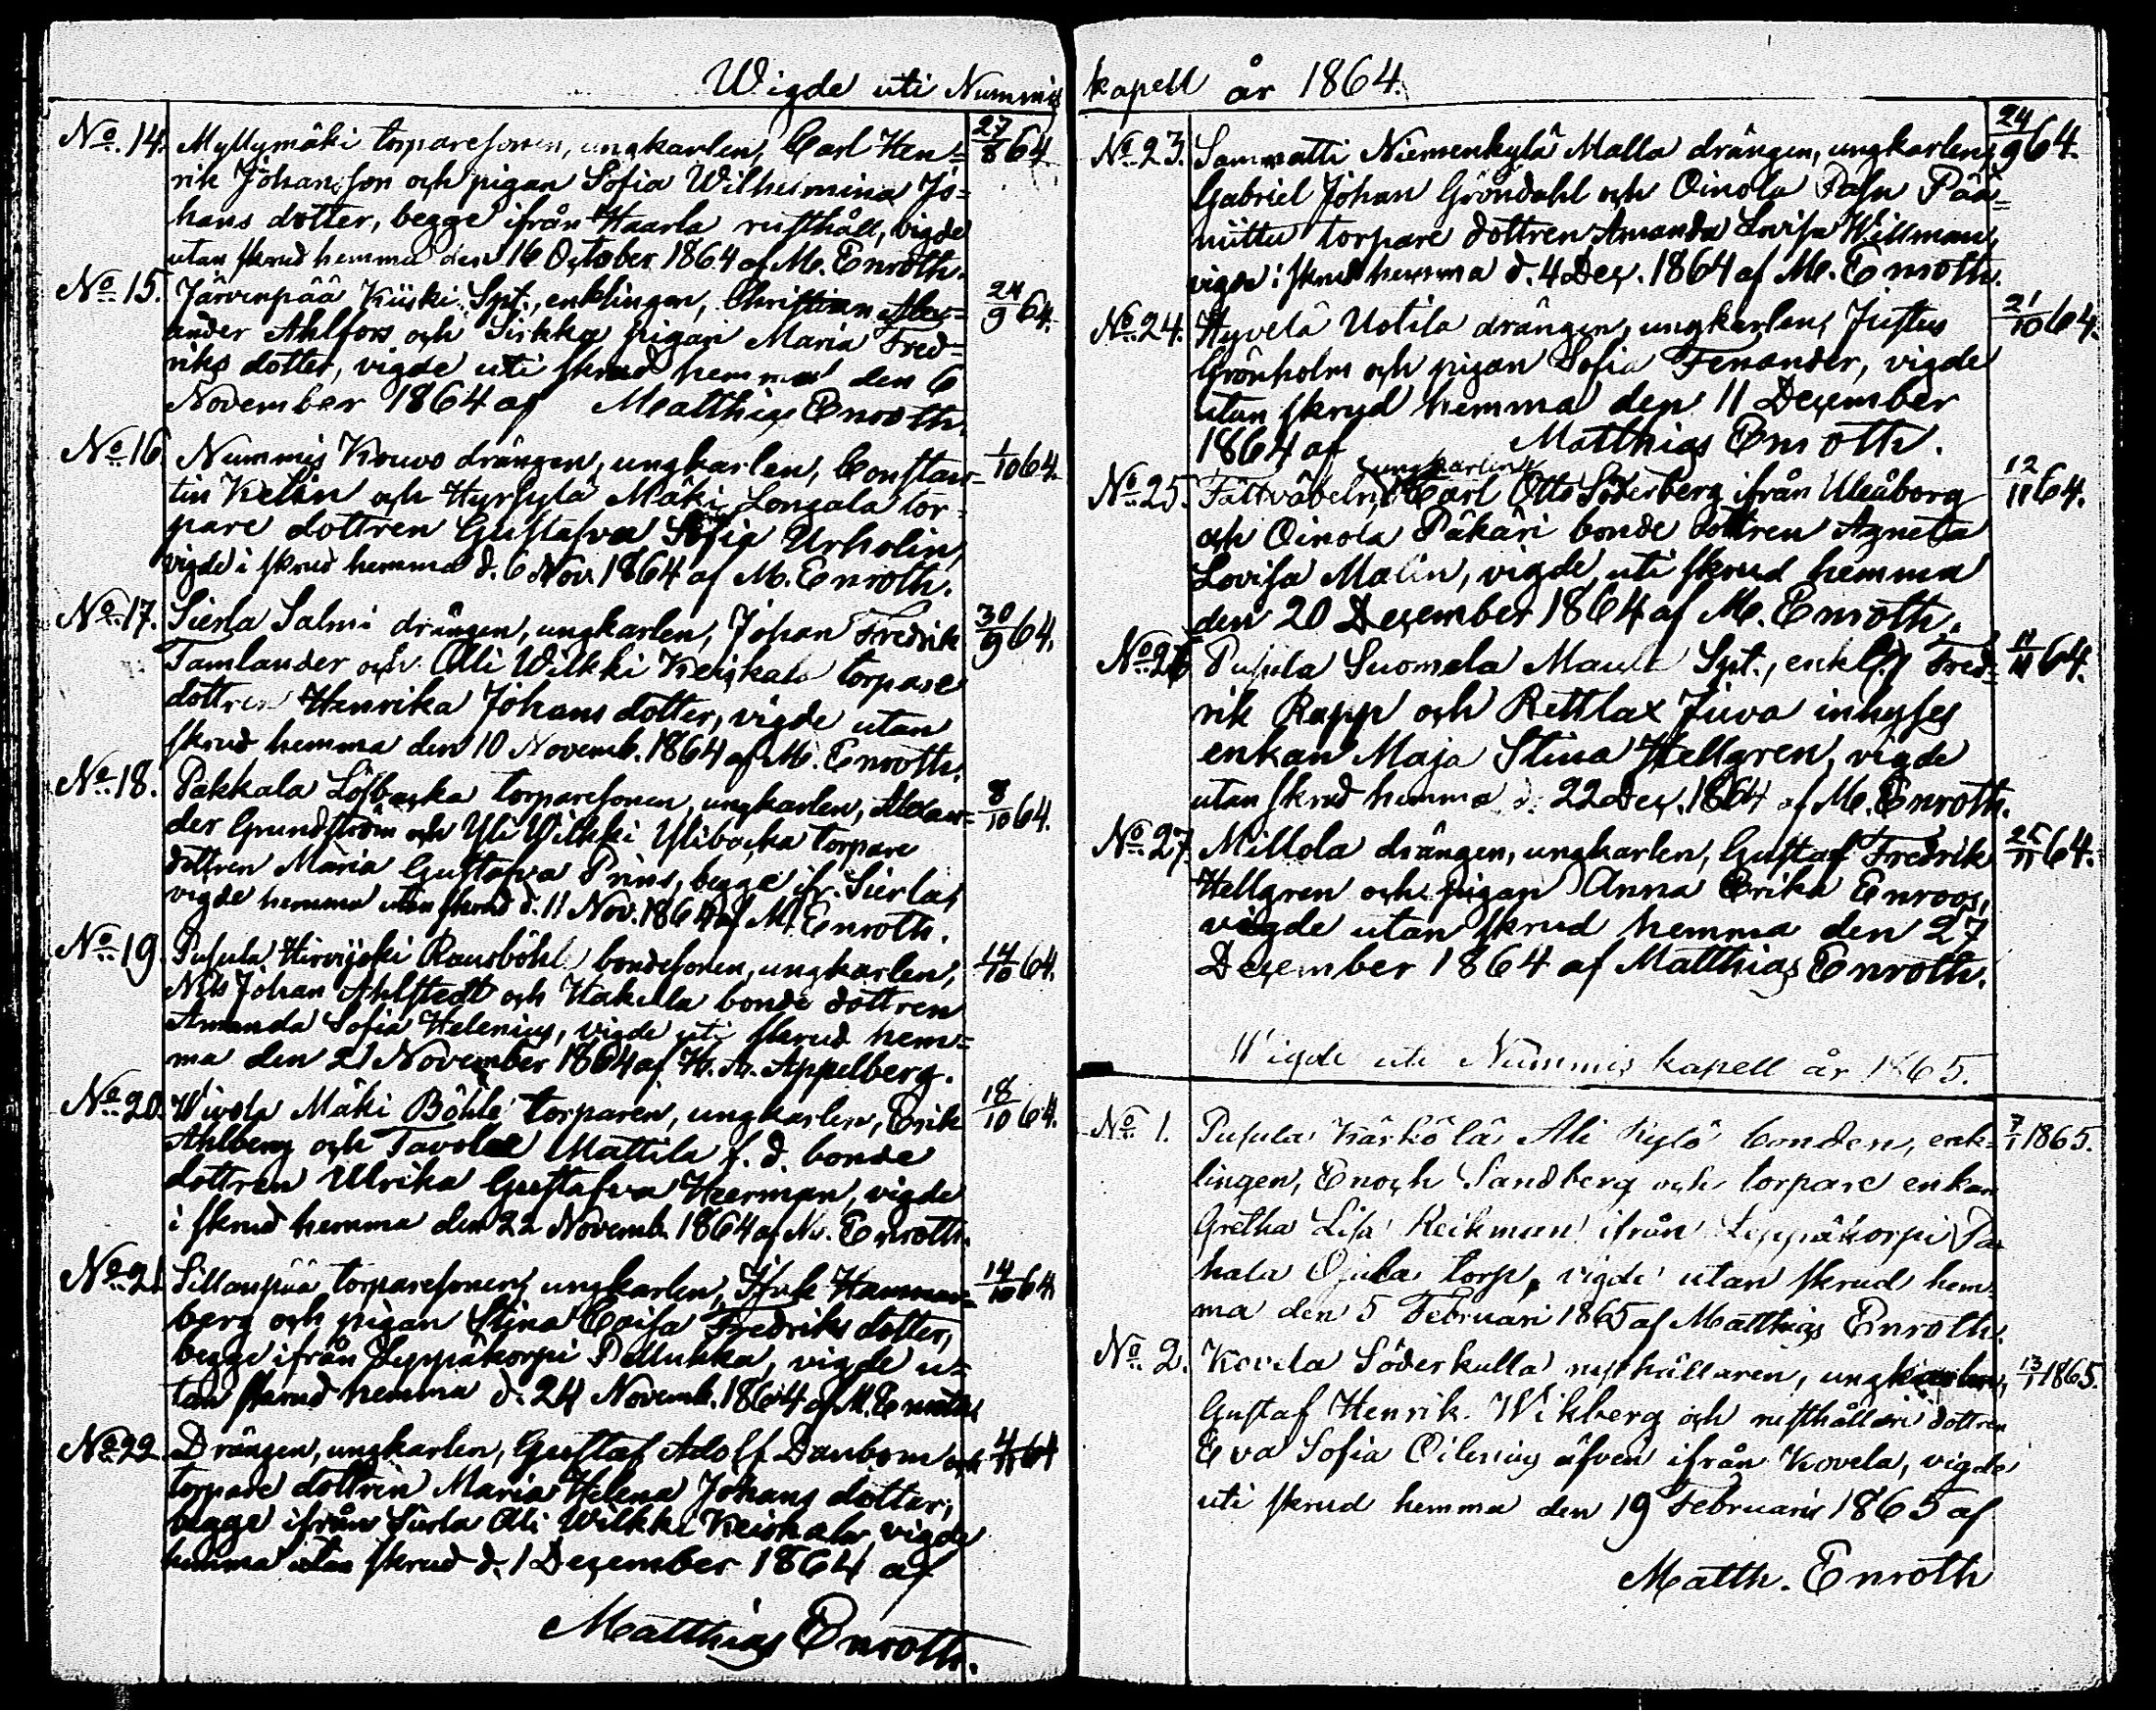 Wigde uti Nummis kapell år 1864.
No. 14. Myllymäki torparesonen, ungkarlen, Carl Hen= 27/8 64.
rik Johansson och pigan Sofia Wilhelmina Jo=
hans dotter, begge ifrån Haarla rusthåll, vigde
utan skrud hemma den 16 October 1864 af M. Enroth.
No. 15. Järvenpää Kiiski Spt., enklingen, Christian Alex= 24/9 64.
ander Ahlfors och Sirkka pigan Maria Fred=
riks dotter, vigde uti skrud hemma den 6
November 1864 af Matthias Enroth.
No. 16. Nummis Kouvo drängen, ungkarlen, Constan= 1/10 64.
tin Kelin och Hyrsylä Mäki Longala tor=
pare dottren Gustafva Sofia Urholin,
vigde i skrud hemma d. 6 Nov. 1864 af M. Enroth.
No. 17. Sierla Salmi drängen, ungkarlen, Johan Fredrik 30/9 64.
Tamlander och Olli Wilkki Keiskala torpare
dottren Henrika Johans dotter, vigde utan
skrud hemma den 10 Novemb. 1864 af M. Enroth.
No. 18. Pakkala Löfbacka torparesonen, ungkarlen, Alexan= 8/10 64.
der Grundström och Yli Wilkki Ylibacka torpare
dottren Maria Gustafva Prins, begge ifr. Sierla,
vigde hemma utan skrud d. 11 Nov. 1864 af M. Enroth.
No. 19. Pusula Hirvijoki Rausböhle bondesonen, ungkarlen, 14/10 64.
Nils Johan Ahlstedt och Hakula bonde dottren
Amanda Sofia Helenius, vigde uti skrud hem=
ma den 21 November 1864 af K. A. Appelberg.
No. 20. Wivola Mäki Böhle torparen, ungkarlen, Erik 18/10 64.
Ahlberg och Tavola Mattila f. d. bonde
dottren Ulrika Gustafva Heerman, vigde
i skrud hemma den 22 Novemb. 1864 af M. Enroth.
No. 21. Sillanpää torparesonen, ungkarlen, Isak Hammar= 14/10 64.
berg och pigan Stina Caisa Fredriks dotter,
begge ifrån Leppäkorpi Pellukka, vigde u=
tan skrud hemma d. 24 Novemb. 1864 af M. Enroth.
No. 22. Drängen, ungkarlen, Gustaf Adolf Danbom och 4/11 64
torpare dottren Maria Helena Johans dotter,
begge ifrån Sierla Olli Wilkki Keiskala vigde
hemma utan skrud d. 1 December 1864 af
Matthias Enroth.
No. 23. Sammatti Niemenkylä Malla drängen, ungkarlen, 24/9 64.
Gabriel Johan Gröndahl och Oinola Pää=
niittu torpare dottren Amanda Lovisa Willman,
vigde i skrud hemma d. 4 Dec. 1864 af M. Enroth.
No. 24. Hyvelä Uotila drängen, ungkarlen, Justus 21/10 64.
Grönholm och pigan Sofia Fenander, vigde
utan skrud hemma den 11 December
1864 af Matthias Enroth.
No. 25. Fältväbeln, ungkarlen, Carl Otto Söderberg ifrån Uleåborg 12/11 64.
och Oinola Päkäri bonde dottren Agneta
Lovisa Malin, vigde uti skrud hemma
den 20 December 1864 af M. Enroth.
No. 26. Pusula Suomela Spt., enkl., Fred= 11/11 64.
rik Rapp och Rettlax Juva inhyses
enkan Maja Stina Hellgren, vigde
utan skrud hemma d. 22 Dec. 1864 af M. Enroth.
No. 27. Millola drängen, ungkarlen, Gustaf Fredrik 25/11 64.
Hellgren och pigan Anna Erika Enroos,
vigde utan skrud hemma den 27
December 1864 af Matthias Enroth.
Wigde uti Nummis kapell år 1865.
No. 1. Pusula Kärkölä Ali Kylö bonden, enk= 7/1 1865.
lingen, Enoch Sandberg och torpare enkan
Gretha Lisa Reikman ifrån Leppäkorpi Pa
hala Ojala torp, vigde utan skrud hem=
ma den 5 Februari 1865 af Matthias Enroth.
No. 2. Kovela Söderkulla rusthållaren, ungkarlen, 13/1 1865.
Gustaf Henrik Wikberg och rusthållare dottren
Eva Sofia Oilenius äfven ifrån Kovela, vigde
uti skrud hemma den 19 Februarii 1865 af
Matth. Enroth